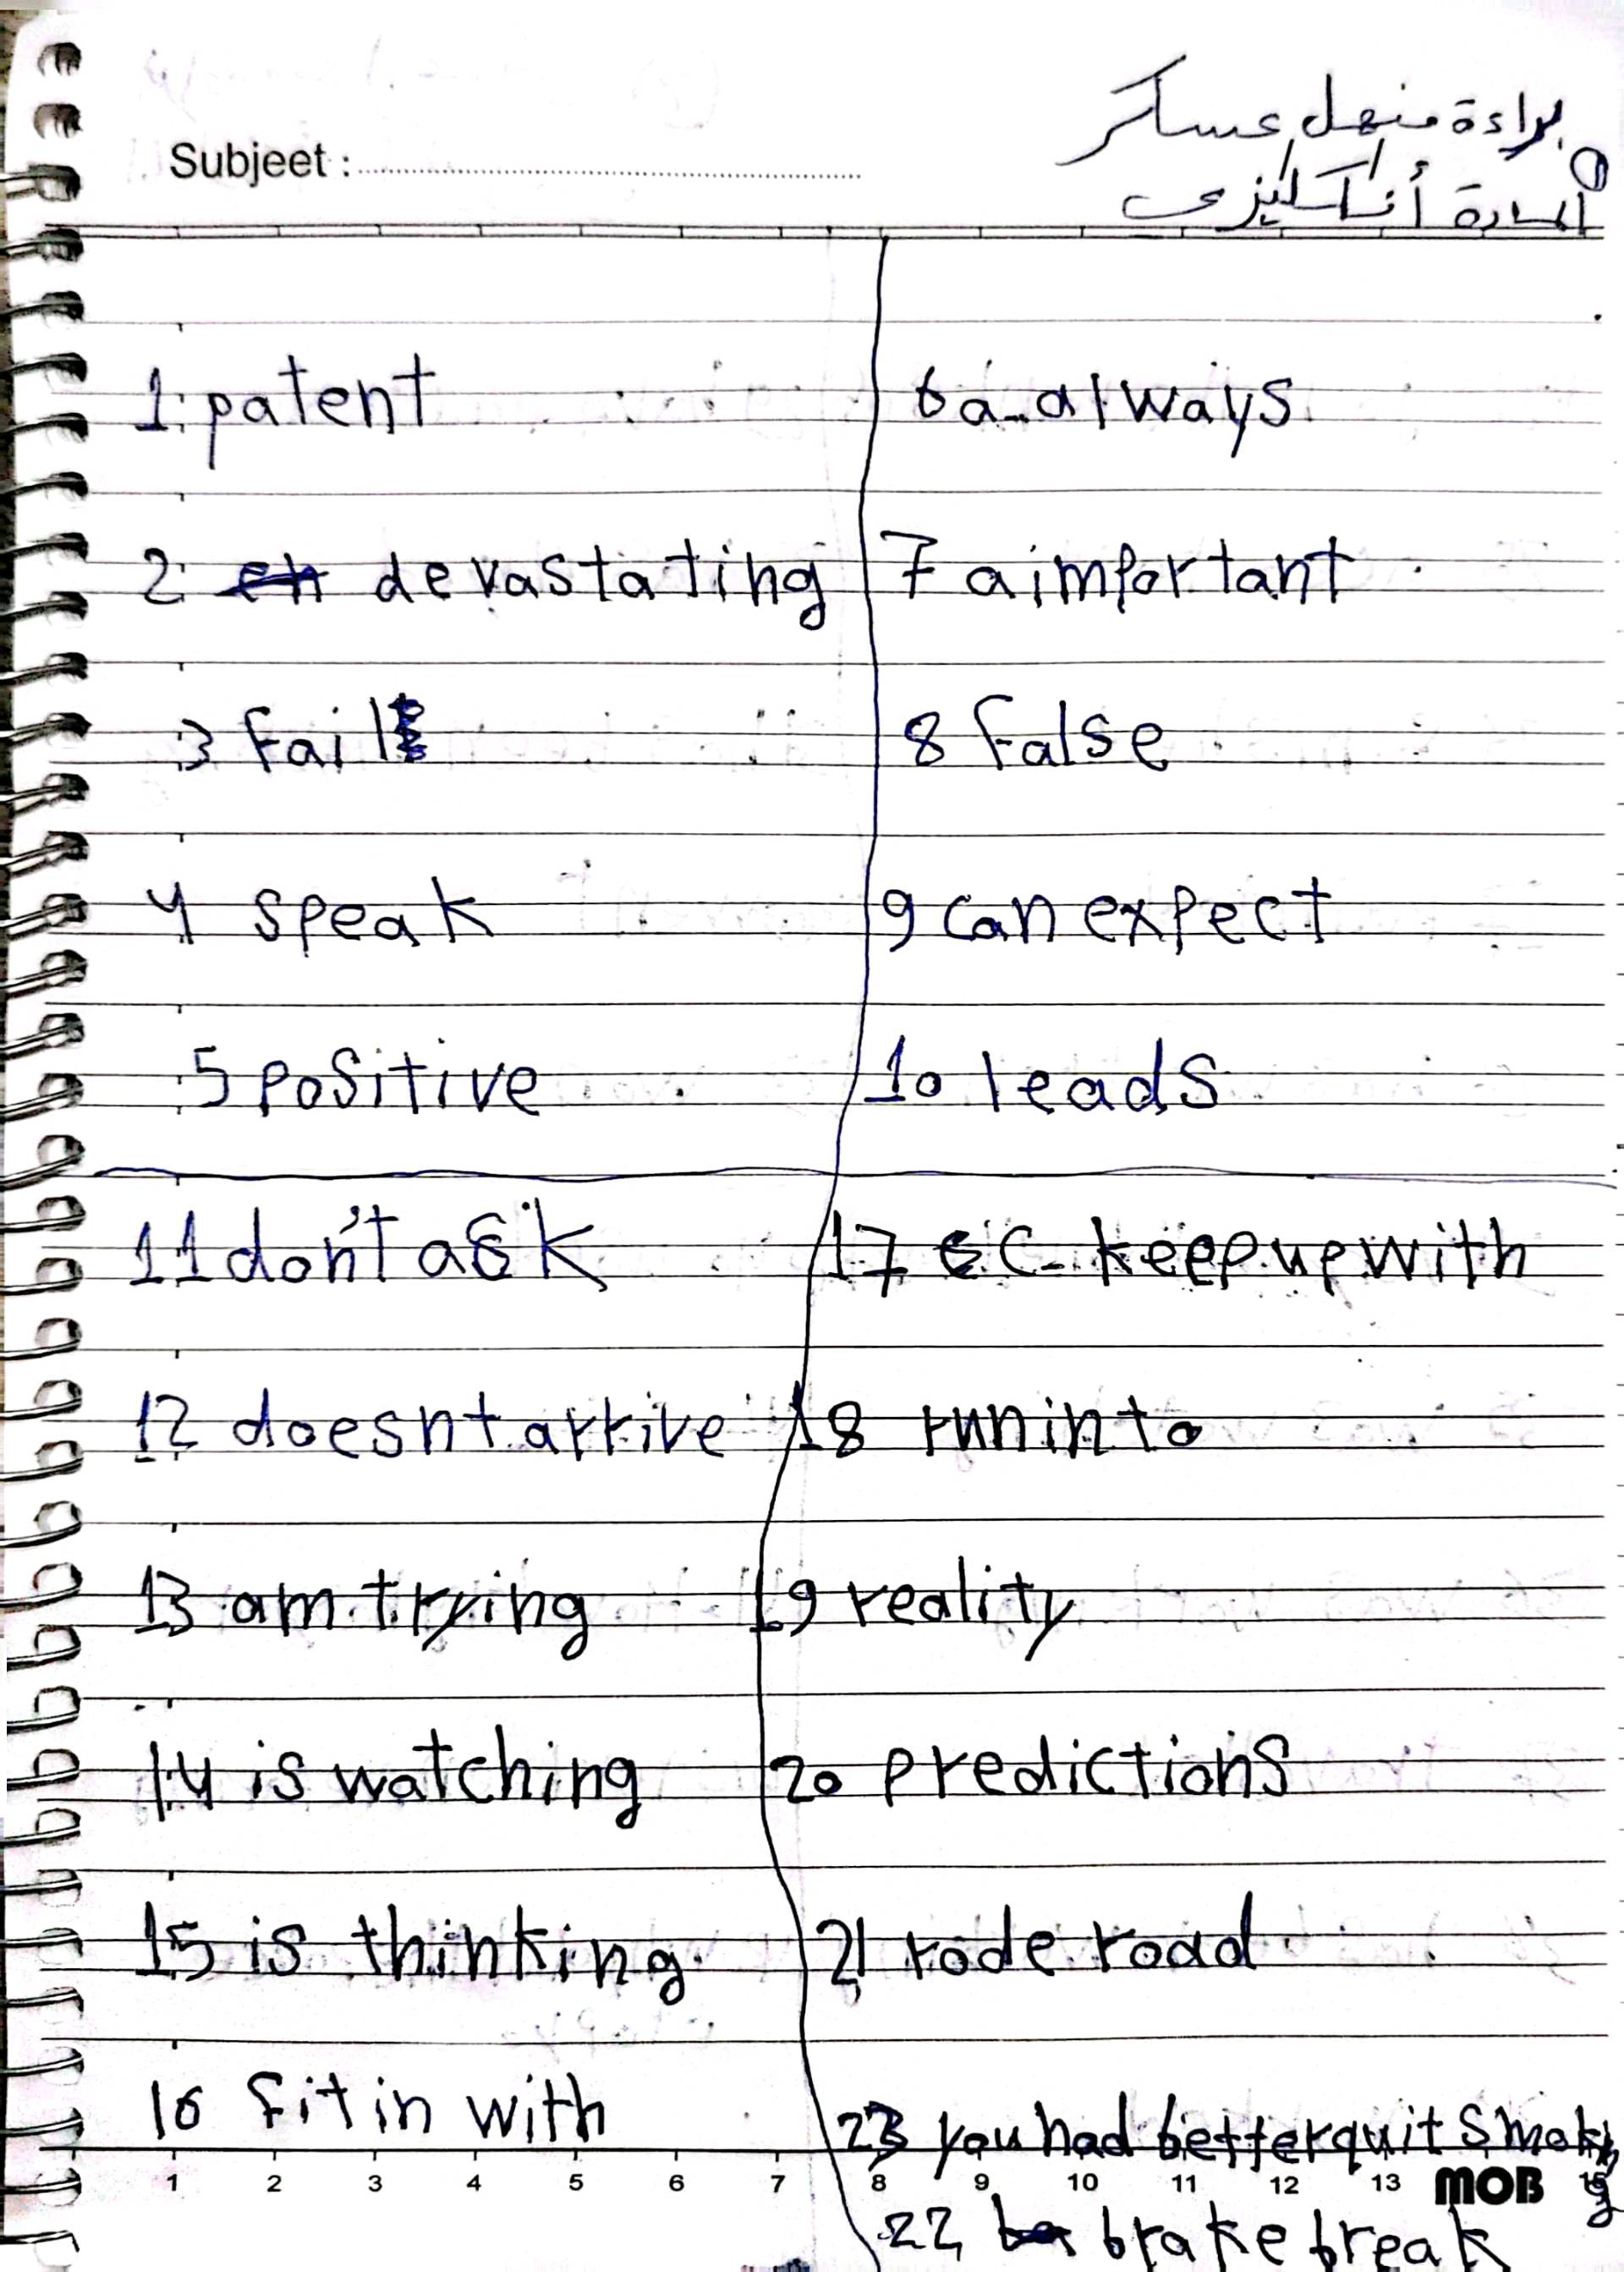 براءة منهل عسكر
Subjeet :
المادة أنكليزي
1. patent
2 devastating
3 Fail
4 speak
5 positive
6 a- always
7 a important
8 False
9 can expect
10 leads
11 don't ask
12 doesnt arrive
13 am trying
14 is watching
15 is thinking
16 fit in with
17 c- keep up with
18 run into
19 reality
20 predictions
21 rode road
23 you had better quit smoking
1 2 3 4 5 6 7 8 9 10 11 12 13 MOB 15
22 brake break